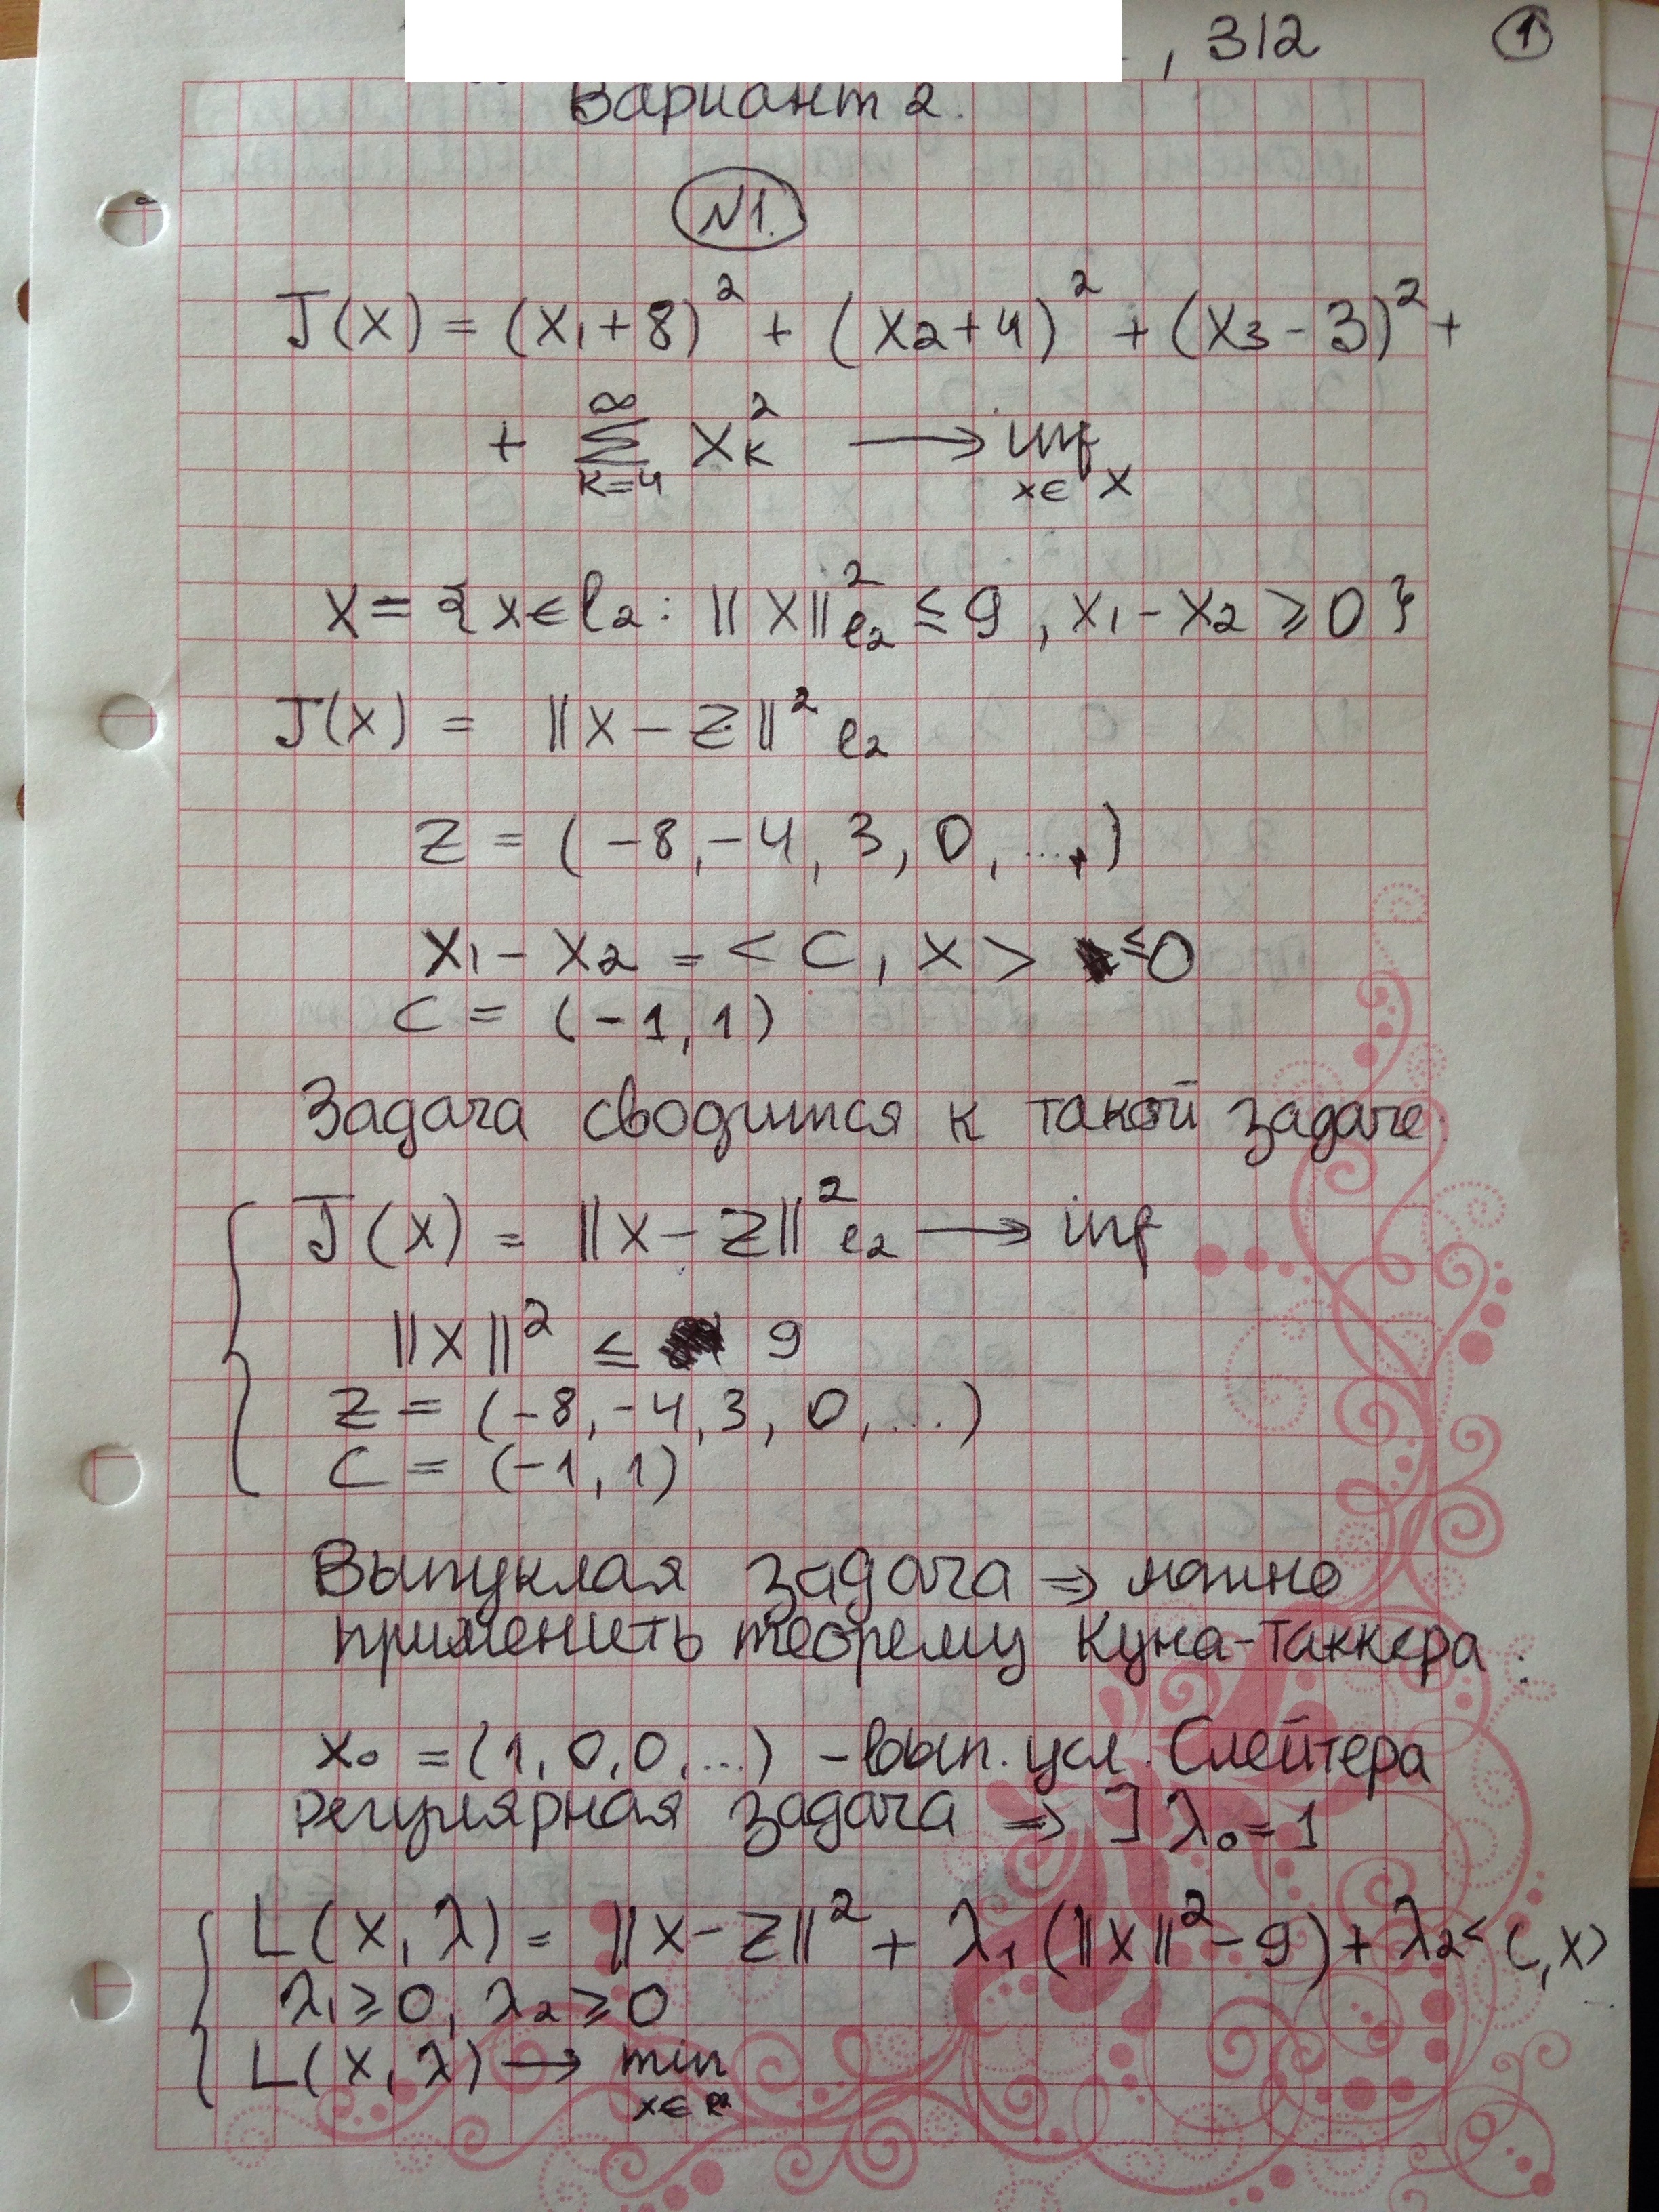 , 312 ①
Вариант 2.
N1.
J(x) = (x₁+8)² + (x₂+4)² + (x₃-3)² +
+ ∑_{k=4}^{∞} x_k² → inf_{x∈X}
X = {x∈l₂: ||x||²_{l₂} ≤ 9, x₁-x₂ ≥ 0}
J(x) = ||x-z||²_{l₂}
z = (-8,-4,3,0,...,)
x₁-x₂ = <c,x> ≤0
c = (-1,1)
Задача сводится к такой задаче
J(x) = ||x-z||²_{l₂} → inf
||x||² ≤ 9
z = (-8,-4,3,0,...)
c = (-1,1)
Выпуклая задача ⇒ можно
применить теорему Куна-Таккера:
x₀ = (1,0,0,...) - вып. усл. Слейтера
регулярная задача ⇒ ] λ₀=1
L(x,λ) = ||x-z||² + λ₁(||x||²-9) + λ₂<c,x>
λ₁≥0, λ₂≥0
L(x,λ) → min_{x∈l₂}